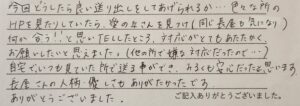 今回どうしたら良い送り出しをしてあげられるか…色々な所の
HPを見たりしていたら、愛のなんを見つけ(同じ長岩も気になり)
何か合う!!と思いTELしたところ、対応がとてもあたたかく、
お願いしたいと思えました。(他の所で嫌な対応だったので…)
自宅で、いつも着ていた所で送る事ができ、みるくも安心だったと思います。
長岩さんの人柄、優しさもありがたかったです
ありがとうございました。
ご記入ありがとうございました。